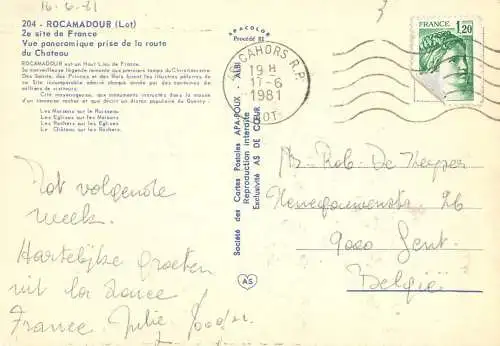 16-6-81
204 - ROCAMADOUR (Lot)
2e site de France
Vue panoramique prise de la route
du Chateau
ROCAMADOUR est un Haut Lieu de France.
Sa merveilleuse légende remonte aux premiers temps du Christianisme.
Des Saints, des Princes et des Rois furent les illustres pélerins de
ce Site incomparable admiré chaque année par des centaines de
milliers de visiteurs.
Cité moyenageuse, aux monuments incrustés dans la masse
d'un immense rocher et que décrit un dicton populaire du Quercy :
Les Maisons sur le Ruisseau
Les Eglises sur les Maisons
Les Rochers sur les Eglises
Le Château sur les Rochers.
Tot volgende
week.
Hartelijke groeten
uit la douce
France. Julie
APACOLOR
Procédé
Société des Cartes Postales APA-POUX - ALBI
Reproduction interdite
Exclusivité AS DE CŒUR
AS
CAHORS R.P.
19 H
11-6
1981
LOT
FRANCE
1,20
Rob. De Keyser
26
9000 Gent.
België